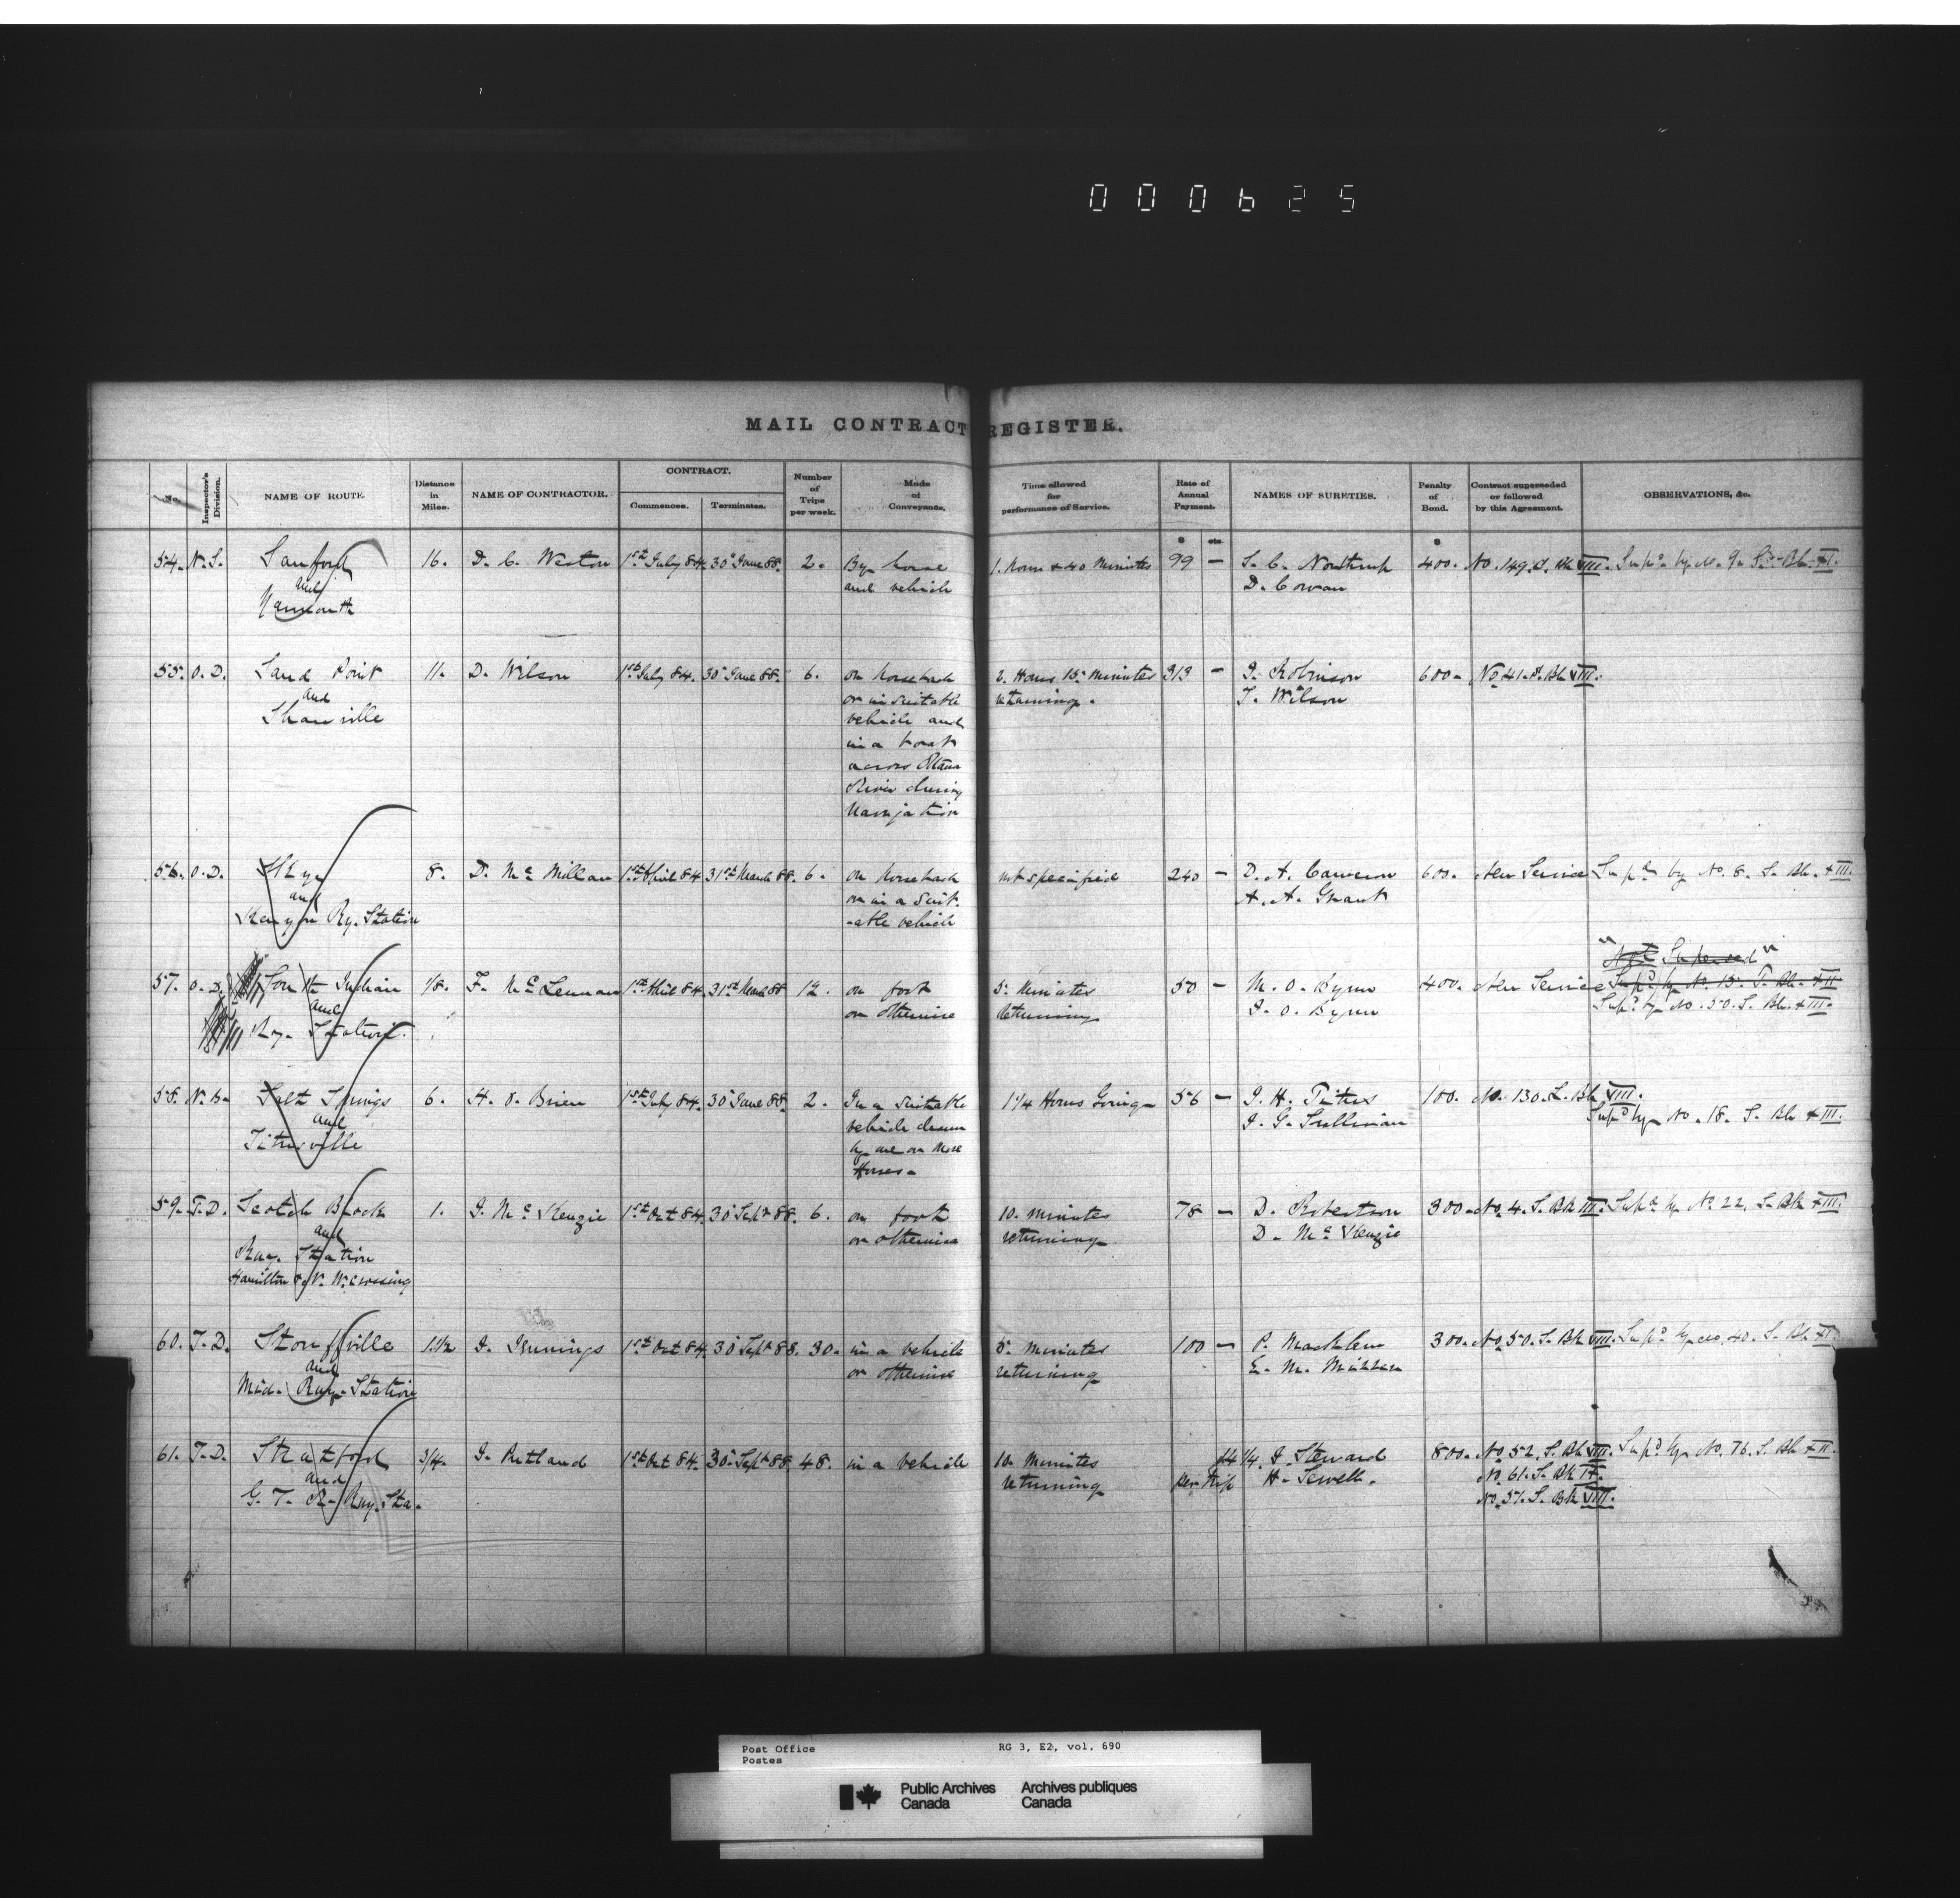 000625
MAIL CONTRACT REGISTER.
No. Inspector's Division. NAME OF ROUTE. Distance in Miles. NAME OF CONTRACTOR. CONTRACT. Commences. Terminates. Number of Trips per week. Mode of Conveyance. Time allowed for performance of Service. Rate of Annual Payment. NAMES OF SURETIES. Penalty of Bond. Contract superseded or followed by this Agreement. OBSERVATIONS, &c.
$ cts. $
54. N.S. Sanford 16. D. C. Weston 1st July 84. 30" June 88. 2. By horse 1. hour & 40 Minutes 99 — S. C. Northrup 400. No. 149. S. Bk VIII. Sup'd by No. 9. S. Bk. XI.
and and vehicle D. Cowan
Yarmouth
55. O.D. Sand Point 11. D. Wilson 1st July 84. 30" June 88. 6. on horseback 2. Hours 15. Minutes 313 — J. Robinson 600. No. 41. S. Bk VIII.
and or in suitable returning. T. Wilson
Shawville vehicle and
in a boat
across Ottawa
River during
Navigation
56. O.D. Skye 8. D. Mc Millan 1st April 84 31st March 88. 6. on horseback not specified 240 — D. A. Cameron 600. New Service Sup'd by No. 8. S. Bk. XIII.
and or in a suit- A. A. Grant
Kenyon Ry. Station -able vehicle
"Not Superseded"
57. O.D. South Indian 1/8. F. Mc Lennan 1st April 84. 31st March 88 12. on foot 5. Minutes 50 — M. O. Byrne 400. New Service Sup'd by No. 15. T. Bk. XII
and or otherwise returning J. O. Byrne Sup'd by No. 50. S. Bk. XIII.
Ry. Station.
58. N.B. Salt Springs 6. H. O. Brien 1st July 84. 30" June 88. 2. In a suitable 1 1/4 Hours Going 56 — J. H. Titus 100. No. 130. S. Bk VIII.
and vehicle drawn J. G. Sullivan Sup'd by No. 18. S. Bk XIII.
Titusville by one or more
Horses.
59. T.D. Scotch Block 1. J. Mc Kenzie 1st Oct 84. 30" Sept 88. 6. on foot 10. minutes 78 — D. Robertson 300. No. 4. S. Bk III. Sup'd by No. 22. S. Bk XIII.
and or otherwise returning D. Mc Kenzie
Rwy. Station
Hamilton & N. W. crossing
60. T.D. Stouffville 1 1/2 J. Jennings 1st Oct 84. 30 Sept 88. 30. in a vehicle 5. minutes 100 — P. Macklem 300. No. 50. S. Bk VIII. Sup'd by No. 40. S. Bk XI.
and or otherwise returning E. M.
Mid. Rwy. Station
61. T.D. Stratford 3/4. J. Rutland 1st Oct 84. 30" Sept 88. 48. in a vehicle 10. Minutes 14 1/4. J. Steward 800. No. 52. S. Bk VIII. Sup'd by No. 76. S. Bk XII.
and returning per trip H. Sewell. No. 61. S. Bk IV.
G. T. R. Rwy. Sta. No. 51. S. Bk VIII.
Post Office RG 3, E2, vol. 690
Postes
Public Archives Archives publiques
Canada Canada